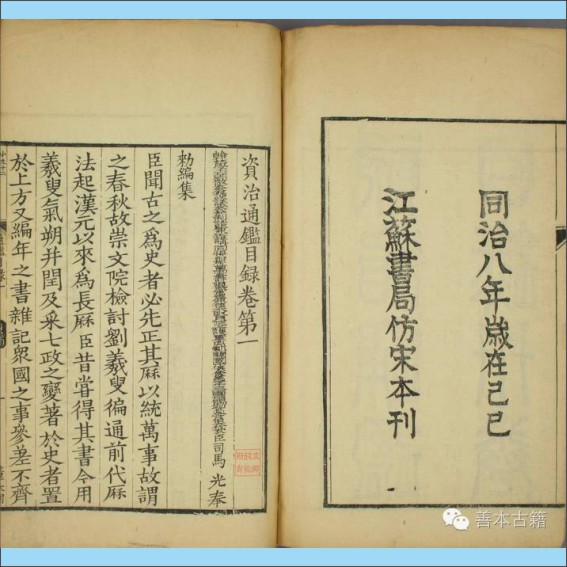 同治八年歲在己巳
江蘇書局仿宋本刊
資治通鑑目録卷第一
臣司馬 光奉
勑編集
臣聞古之爲史者必先正其厤以統萬事故謂
之春秋故崇文院檢討劉羲叟徧通前代厤
法起漢元以來爲長厤臣昔嘗得其書今用
羲叟氣朔并閏及采七政之變著於史者置
於上方又編年之書雜記衆國之事參差不齊
善本古籍